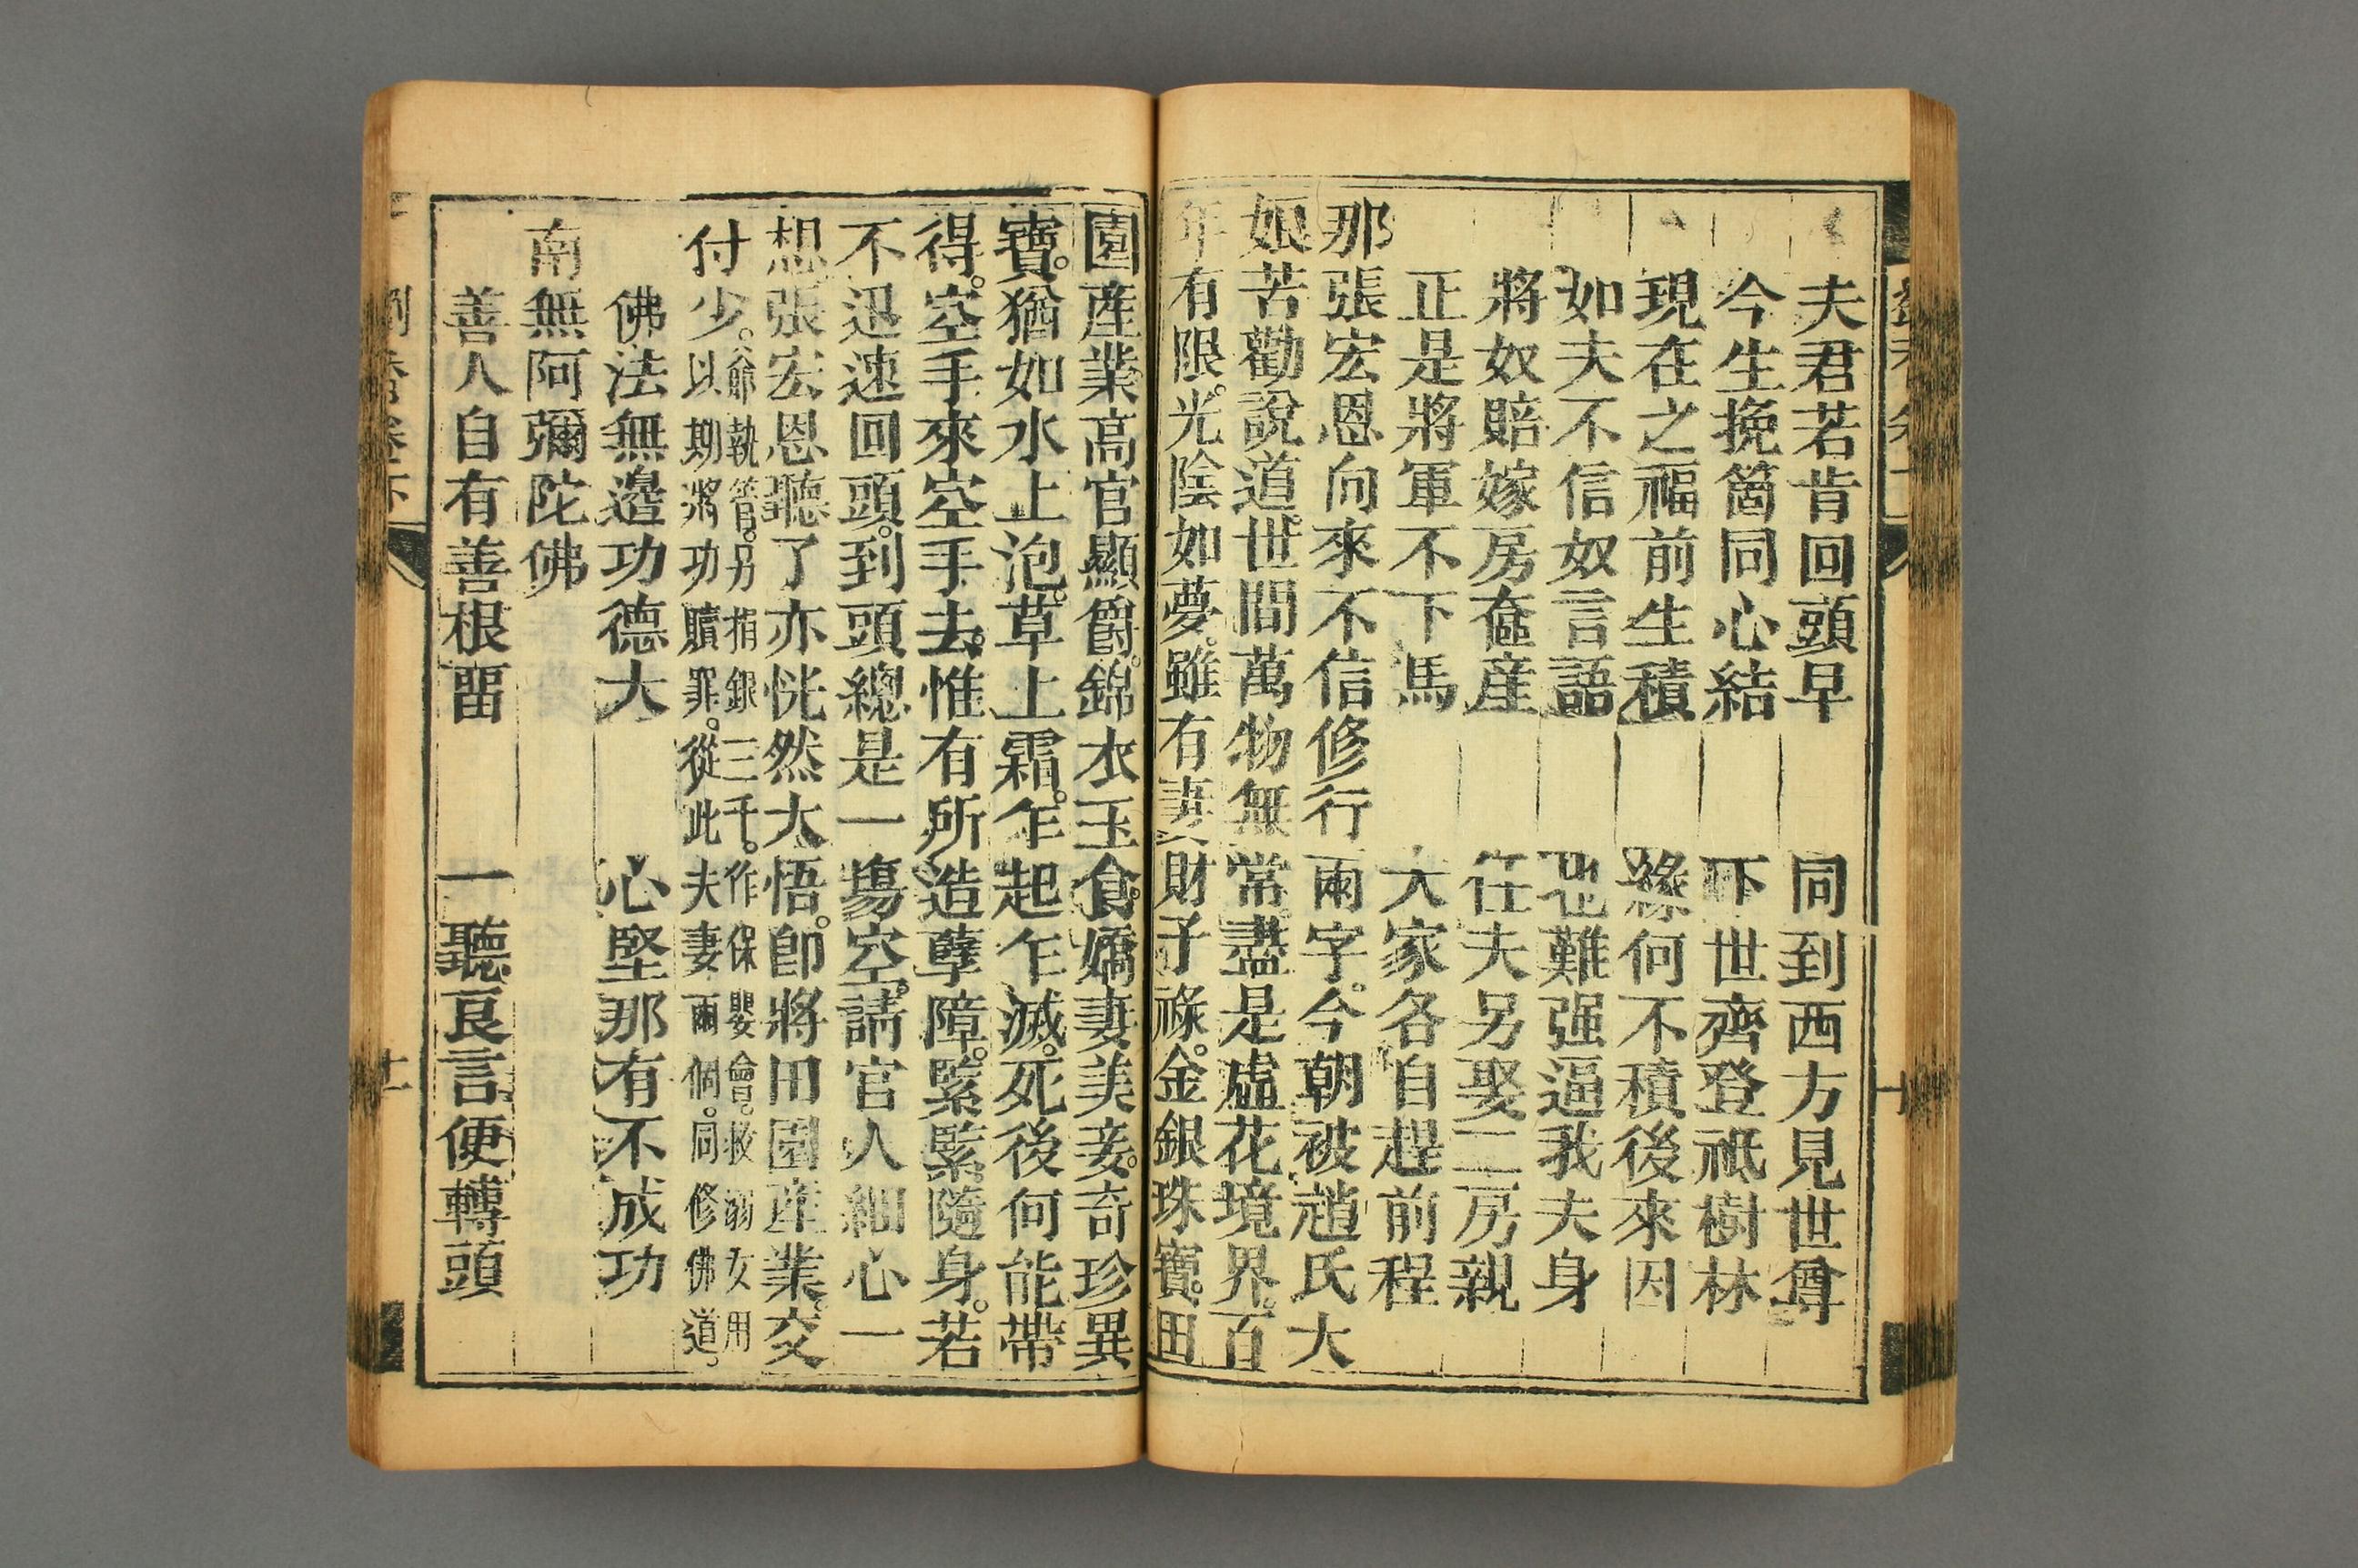 夫君若肯回頭早　同到西方見世尊
今生挽箇同心結　下世齊登祇樹林
現在之福前生積　緣何不積後來因
如夫不信奴言語　也難强逼我夫身
將奴賠嫁房奩産　任夫另娶二房親
正是將軍不下馬　大家各自趕前程
那張宏恩向來不信修行兩字。今朝被趙氏大
娘苦勸說道。世間萬物無常。盡是虛花境界。百
年有限。光陰如夢。雖有妻財子祿。金銀珠寶。田
園産業高官顯爵。錦衣玉食。嬌妻美妾。奇珍異
寶。猶如水上泡。草上霜。乍起乍滅。死後何能帶
得。空手來空手去。惟有所造孽障。緊緊隨身。若
不迅速回頭。到頭總是一場空。請官人細心一
想。張宏恩聽了亦恍然大悟。卽將田園産業。交
付少爺執管。另捐銀三千。作保嬰會。救溺女用
以期將功贖罪。從此夫妻兩個。同修佛道。
佛法無邊功德大　心堅那有不成功
南無阿彌陀佛
善人自有善根畱　一聽良言便轉頭
劉香卷下
十一